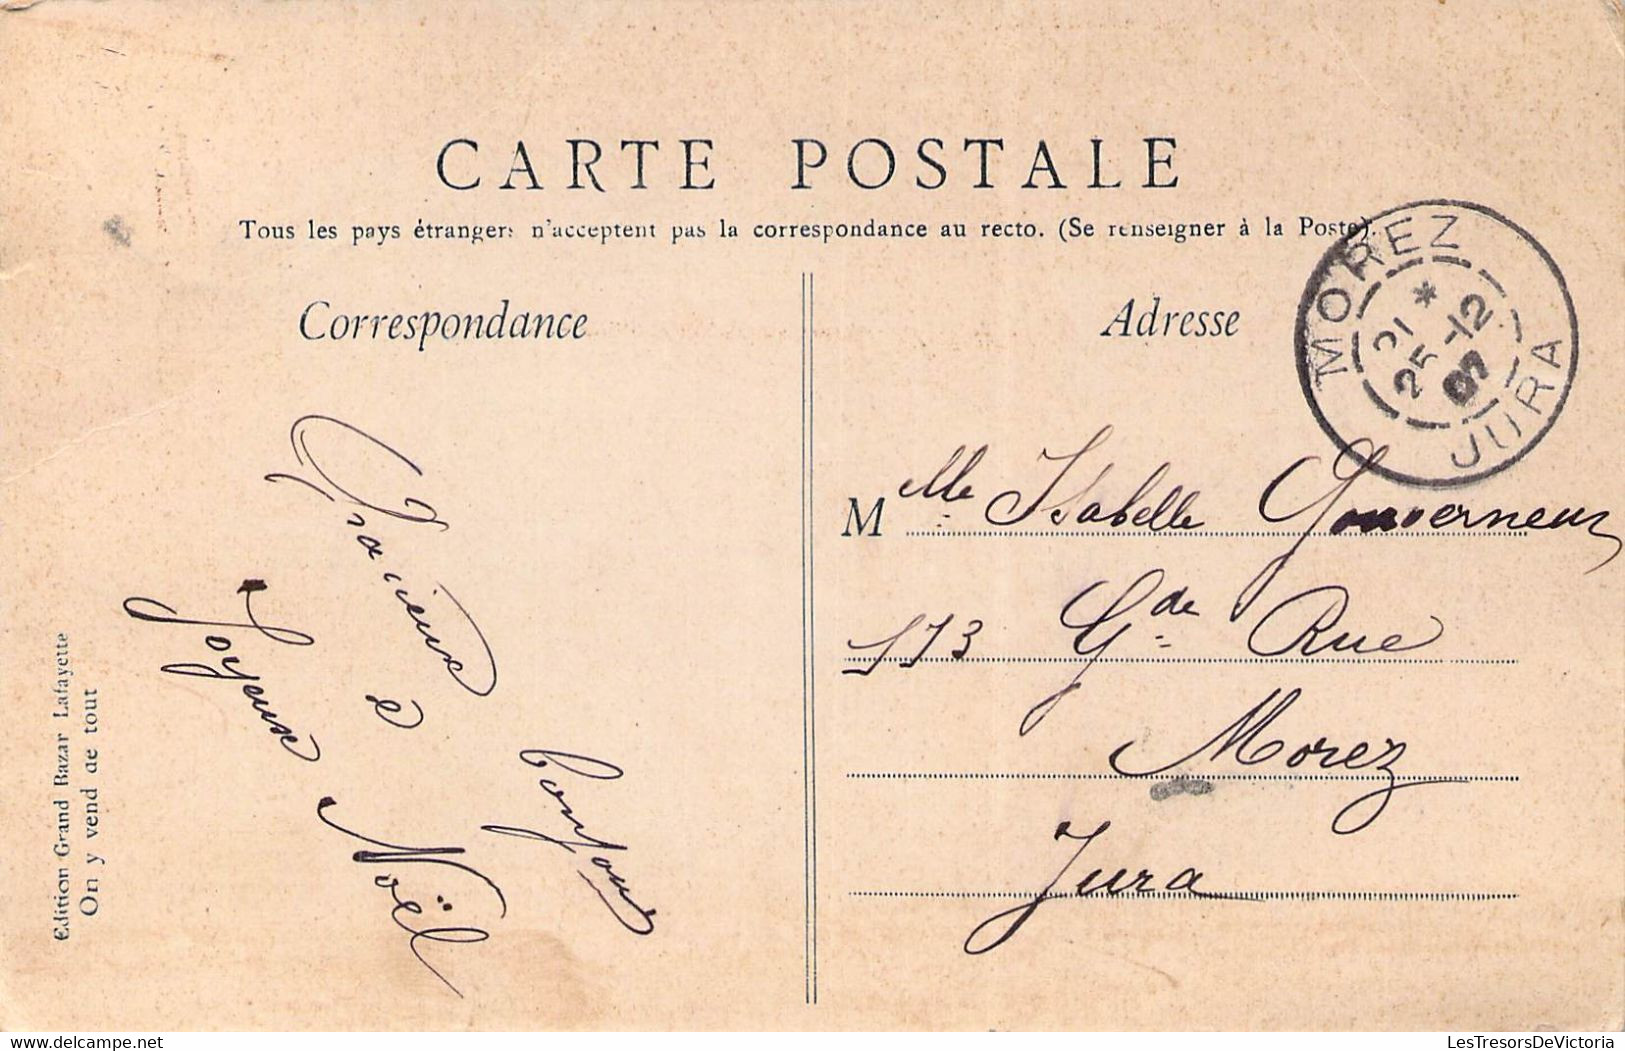 CARTE POSTALE
Tous les pays étrangers n'acceptent pas la correspondance au recto. (Se renseigner à la Poste).
Correspondance
Adresse
MOREZ
JURA
*
21
25-12
07
Gracieuse
à
bonjour
Joyeuse Noël
Mlle Isabelle Gouverneur
113 Gde Rue
Morez
Jura
Edition Grand Bazar Lafayette
On y vend de tout
delcampe.net
LesTresorsDeVictoria